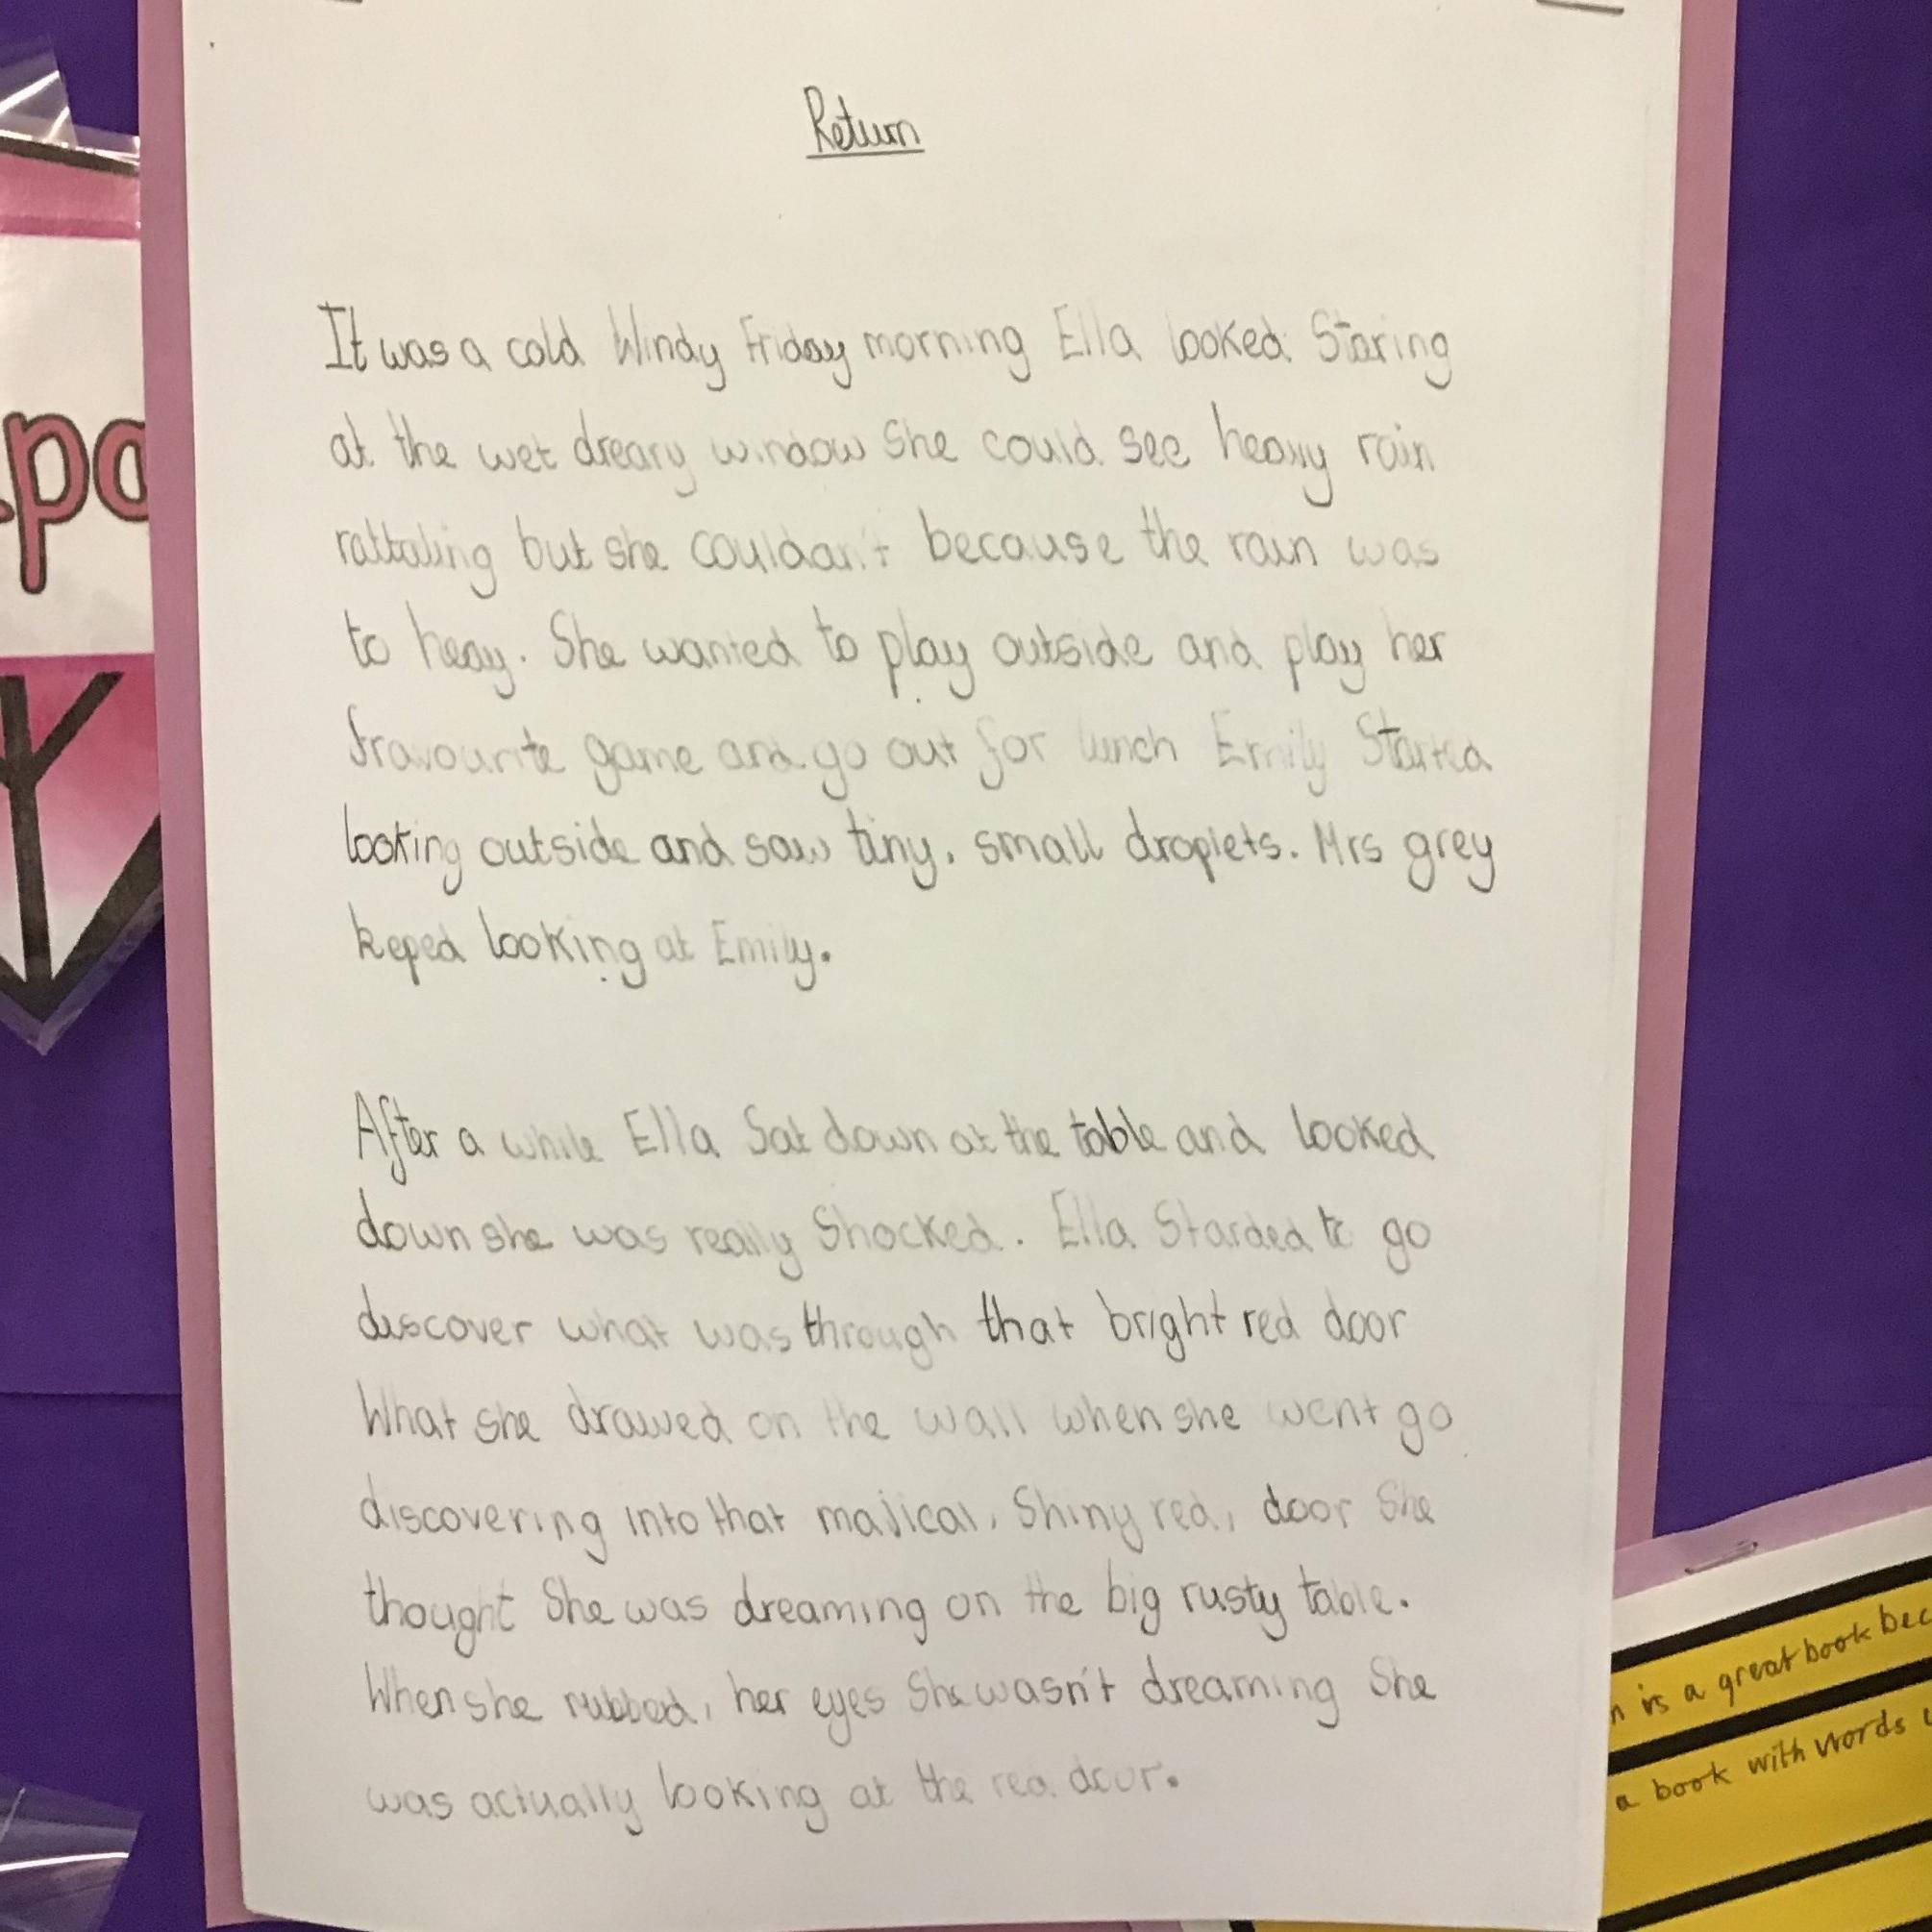 Return
It was a cold Windy Friday morning Ella looked. Staring
at the wet dreary window She could see heavy rain
rattaling but she couldan't because the rain was
to heay. She wanted to play outside and play her
fravourite game and go out for lunch Emily Started
looking outside and saw tiny, small droplets. Mrs grey
keped looking at Emily.
After a while Ella Sat down at the table and looked
down she was really Shocked. Ella Starded to go
discover what was through that bright red door
What she drawed on the wall when she went go
discovering into that majical, Shiny red, door She
thought She was dreaming on the big rusty table.
When she rubbed, her eyes She wasn't dreaming She
was actually looking at the red door.
is a great book bec
a book with words